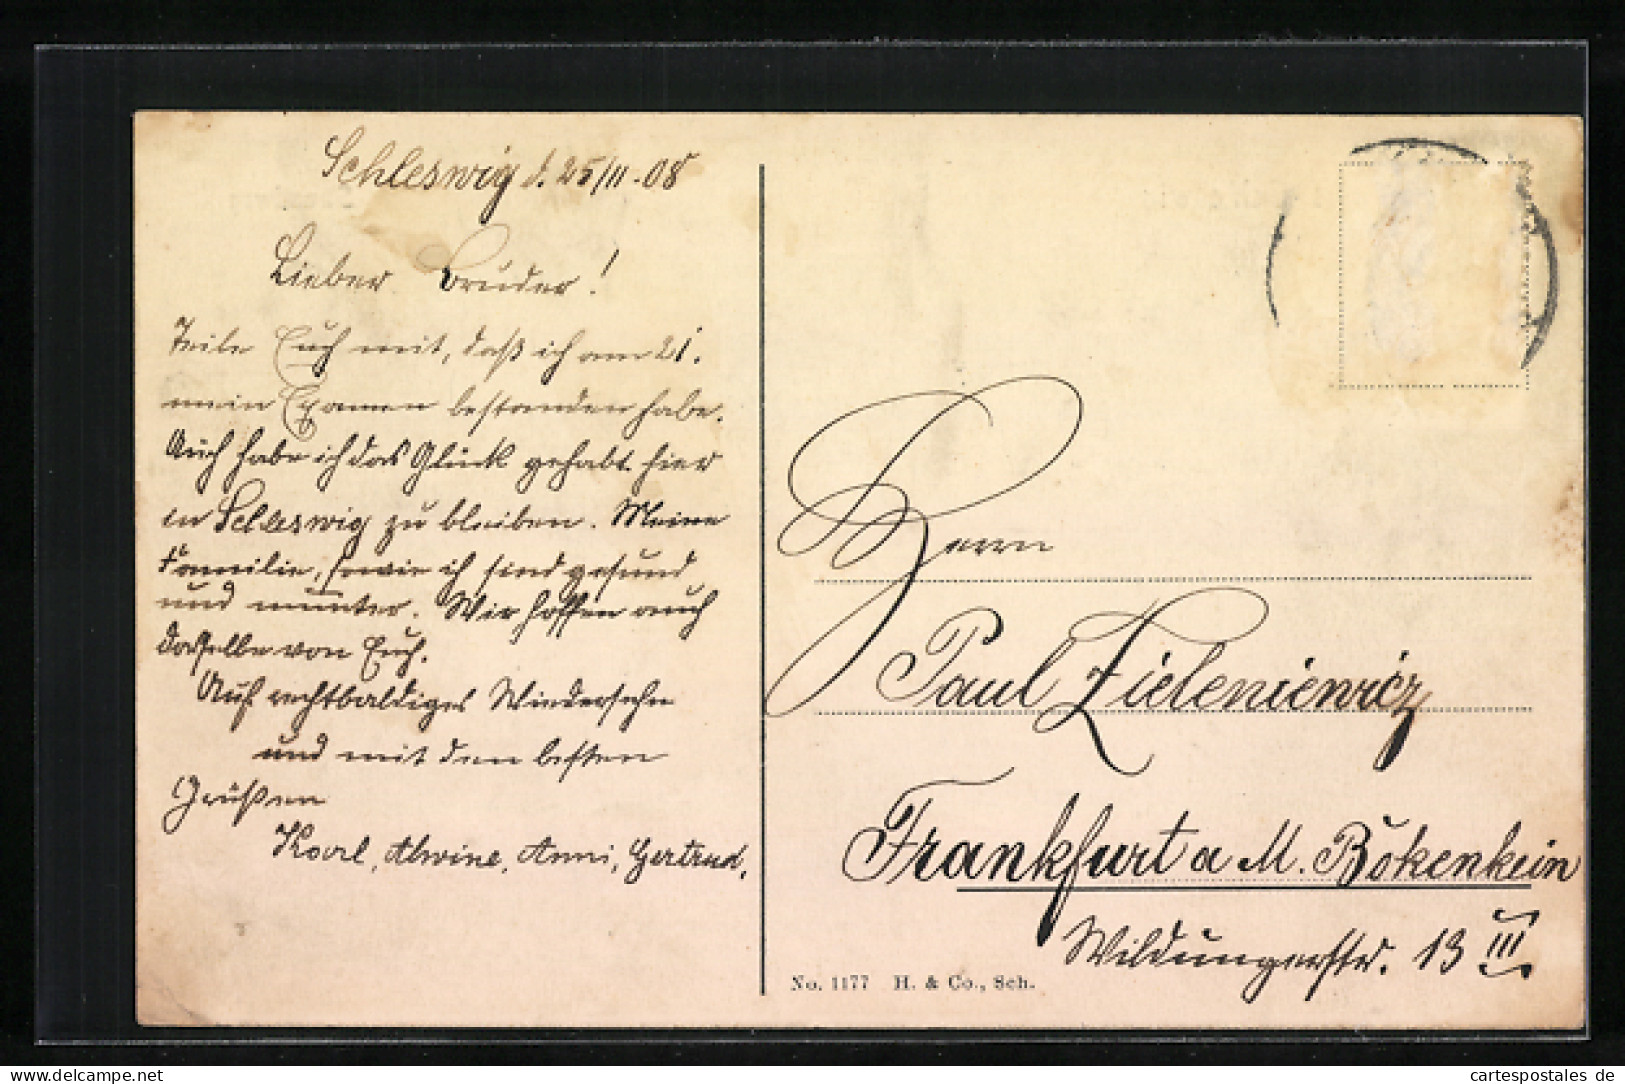 Schleswig d. 25/11.08
Lieber Bruder!
Teile Euch mit, daß ich am 21.
mein Examen bestanden habe.
Auch habe ich das Glück gehabt hier
in Schleswig zu bleiben. Meine
Familie, sowie ich sind gesund
und munter. Wir hoffen auch
dasselbe von Euch.
Auf recht baldiges Wiedersehn
und mit den besten
Grüßen
Karl, Alwine, Anni, Gertrud.
Herrn
Paul Zieleniewicz
Frankfurt a M. Bokenheim
Wildungerstr. 13 III
No. 1177 H. & Co., Sch.
cartespostales de